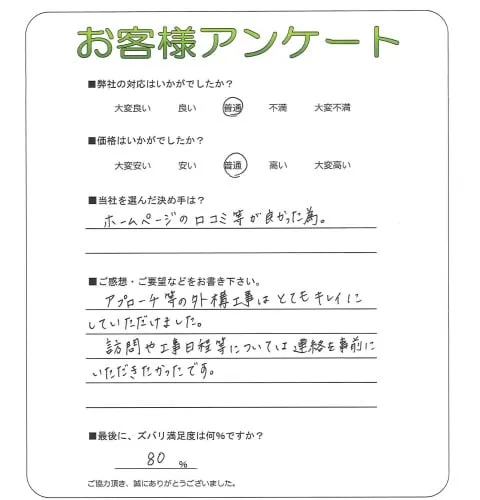 お客様アンケート
■弊社の対応はいかがでしたか？
大変良い 良い 普通 不満 大変不満
■価格はいかがでしたか？
大変安い 安い 普通 高い 大変高い
■当社を選んだ決め手は？
ホームページの口コミ等が良かった為。
■ご感想・ご要望などをお書き下さい。
アプローチ等の外構工事はとてもキレイに
していただけました。
訪問や工事日程等については連絡を事前に
いただきたかったです。
■最後に、ズバリ満足度は何%ですか？
80 %
ご協力頂き、誠にありがとうございました。